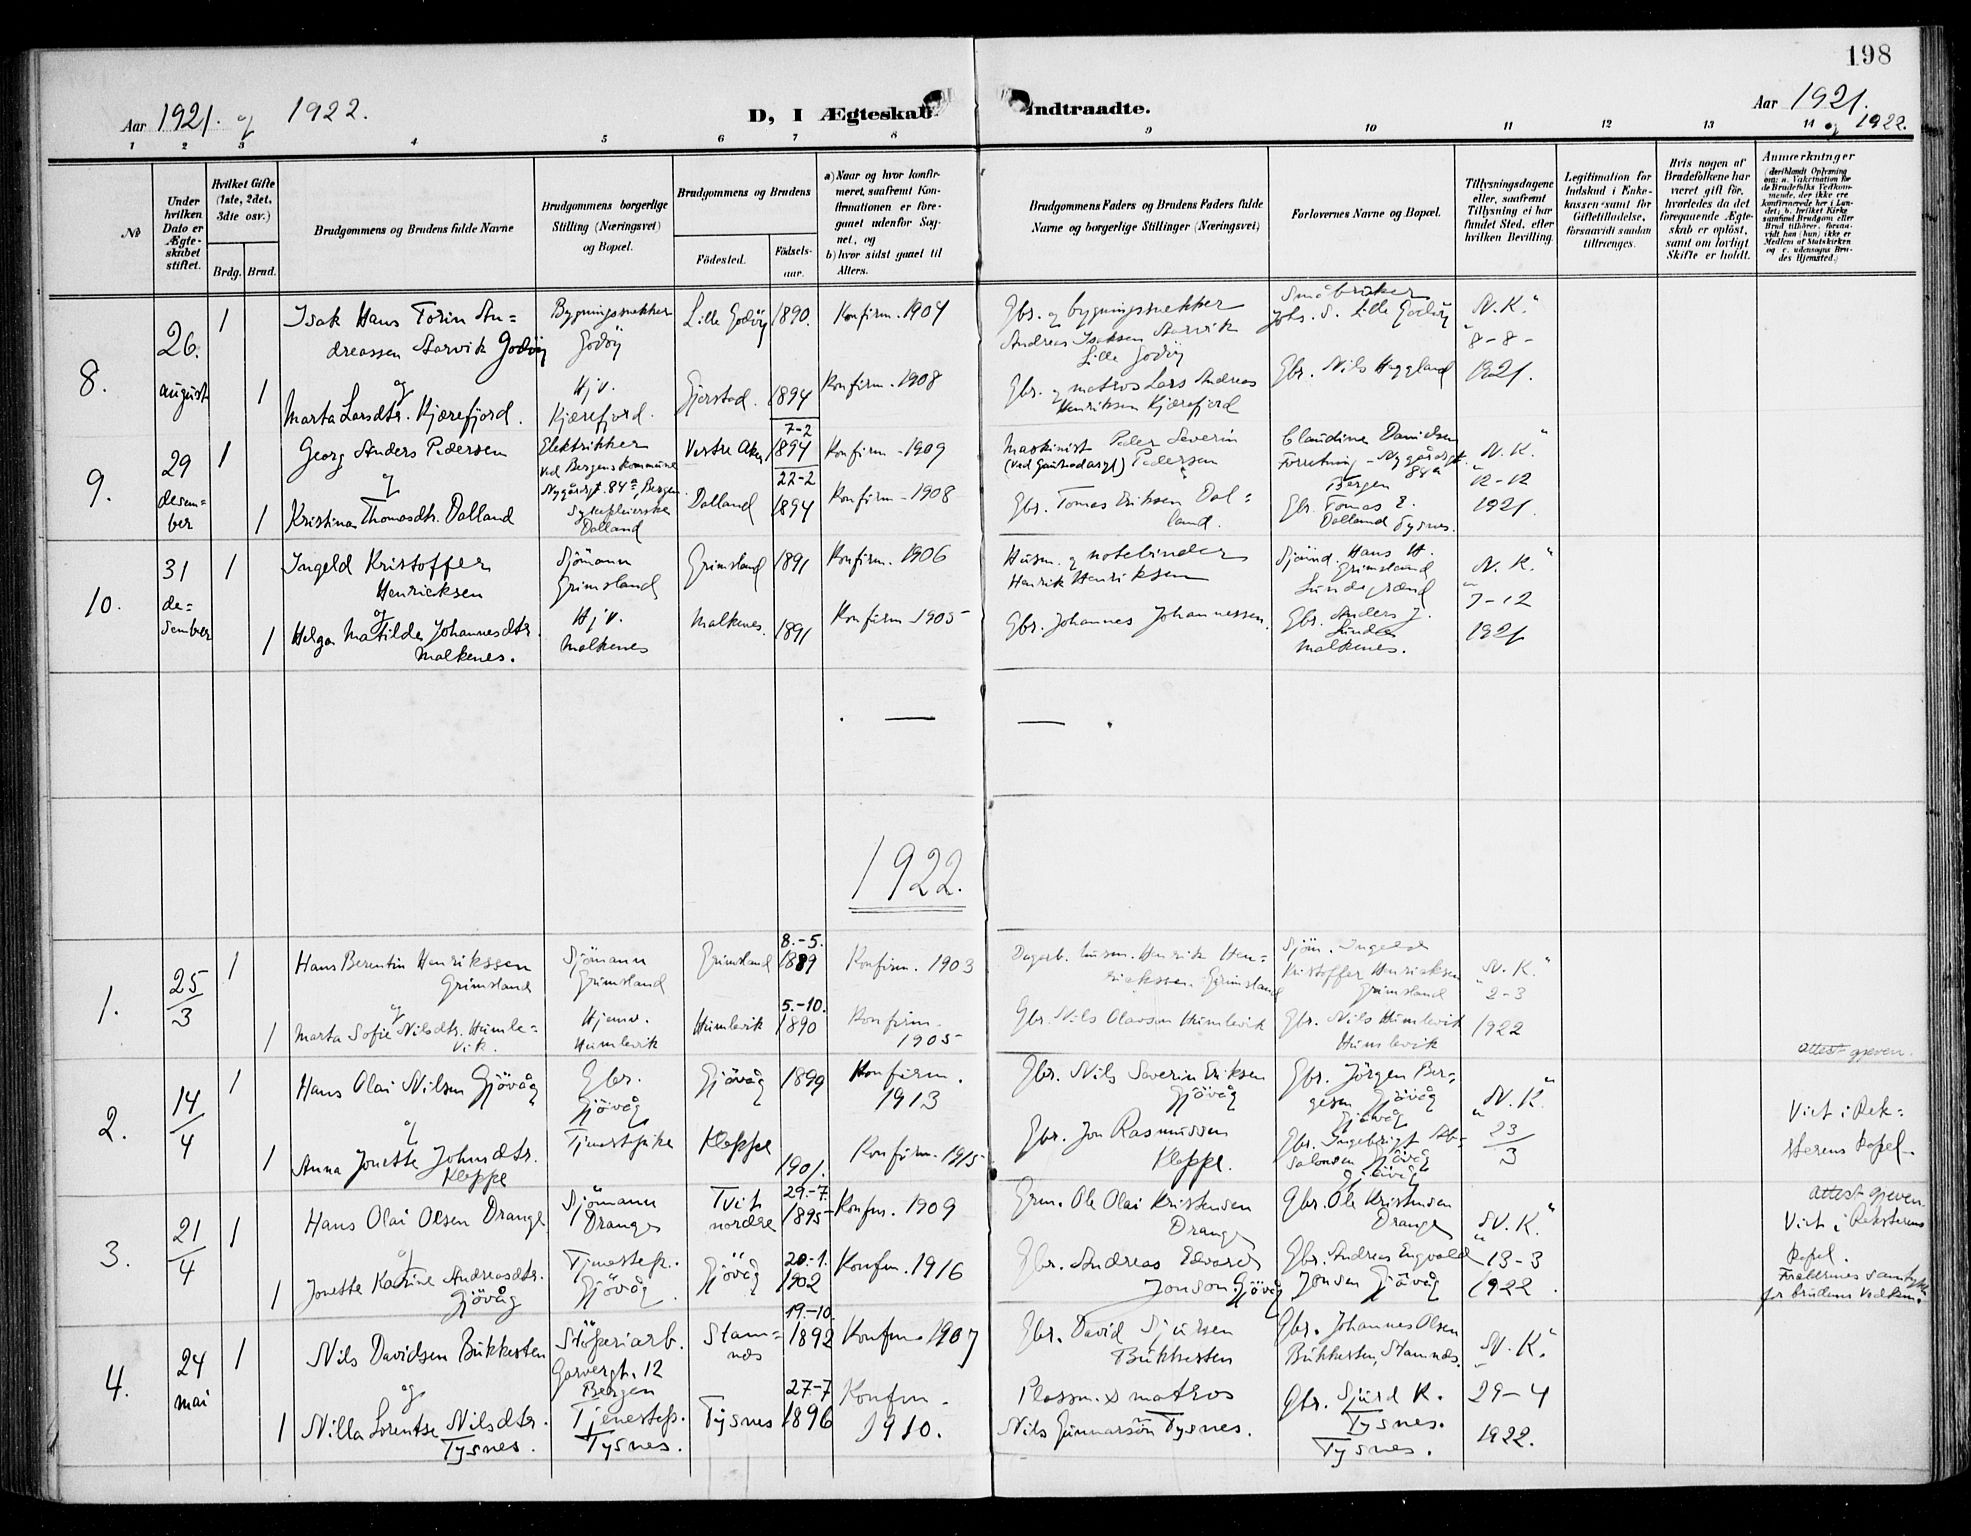 198
Aar 1921. og 1922.
D, I Ægteskab Indtraadte.
Aar 1921.
og 1922.
1 2 3 4 5 6 7 8 9 10 11 12 13 14
No
Under hvilken Dato er Ægteskabet stiftet.
Hvilket Gifte (1ste, 2det, 3die osv.)
Brdg. Brud.
Brudgommens og Brudens fulde Navne
Brudgommens borgerlige Stilling (Næringsvei) og Bopæl.
Brudgommens og Brudens
Födested.
Födselsaar.
a) Naar og hvor konfirmeret, saafremt Konfirmationen er foregaaet udenfor Sognet, og
b) hvor sidst gaaet til Alters.
Brudgommens Faders og Brudens Faders fulde Navne og borgerlige Stillinger (Næringsvei)
Forlovernes Navne og Bopæl.
Tillysningsdagene eller, saafremt Tillysning ei har fundet Sted, efter hvilken Bevilling.
Legitimation for Indskud i Enkekassen samt for Giftetilladelse, forsaavidt saadan tiltrænges.
Hvis nogen af Brudefolkene har været gift för, hvorledes da det foregaaende Ægteskab er oplöst, samt om lovligt Skifte er holdt.
Anmærkninger
(deriblandt Oplysning om: a. Vakcination for de Brudefolks Vedkommende, der ikke ere konfirmerede her i Landet; b. hvilket Kirkesamfund Brudgom eller Brud tilhører, forsaavidt han (hun) ikke er Medlem af Statskirken og c. udensogns Brudes Hjemsted.)
8.
26. august
1
Isak Hans Torin Andreassen Aarvik Godöy
Bygningssnekker
Godöy
Lille Godöy
1890.
Konfirm. 1904
Gbr. og bygningssnekker
Andreas Isaksen Aarvik
Lille Godöy
Småbruker
Johs. S. Lille Godöy
"N.K."
8-8-
1921.
og
1
Marta Larsdtr. Kjærefjord.
Hjv.
Kjærefjord.
Gjerstad.
1894
Konfirm. 1908
Gbr. og matros Lars Andreas
Henriksen Kjærefjord
Gbr. Nils Heggland
9.
29 desember
1
Georg Anders Pedersen
Elektrikker
ved Bergens kommune
Nygårdsgt. 84a, Bergen
Vestre Aker
7-2
1894
Konfirm - 1909
Maskinist Peder Severin
(ved Gaustadasyl) Pedersen
Claudine Davidsen
Forretning - Nygårdsgt.
84a
Bergen
"N.K."
12-12
1921.
og
1
Kristina Thomasdtr. Dalland
Sykepleierske
Dalland
Dalland
22-2
1894
Konfirm - 1908
Gbr. Tomas Eriksen Dalland.
Gbr. Tomas E.
Dalland Tysnes.
10.
31 desember
1
Ingeld Kristoffer
Henricksen
Sjömann
Grimsland
Grimsland
1891
Konfirm. 1906
Husm. og notebinder
Henrik Henriksen
Sjömd. Hans H.
Grimsland
"N. K."
7-12
1921
og
1
Helga Matilde Johannesdtr.
Malkenes.
Hjv.
Malkenes
Malkenes.
1891
Konfirm 1905
Gbr. Johannes Johannessen.
Gbr. Anders J.
Malkenes.
1922.
1.
25/3
1
Hans Berentin Henrikssen
Grimsland
Sjömann
Grimsland
Grimsland
8.-5.
1889
Konfirm. 1903
Dagarb. husm. Henrik Henrickssen Grimsland
Sjöm. Ingeld
Kristoffer Henricksen
Grimsland
"N.K."
2-3
1922
og
1
Marta Sofie Nilsdtr. Humlevik.
Hjemv.
Humlevik
Humlevik
5.-10.
1890
Konfirm.
1905
Gbr. Nils Olavson Humlevik
Gbr. Nils Humlevik
Humlevik
2.
14/4
1
Hans Olai Nilsen Gjövåg
Gbr.
Gjövåg
Gjövåg
1899
Konfirm.
1913
Gbr. Nils Severin Eriksen
Gjövåg
Gbr. Jörgen Bergesen Gjövåg
Gjövåg
"N.K."
23/3
attest gjeven.
Viet i Reksterens Kapel.
og
1
Anna Jonette Johnsdtr.
Kleppe
Tjenestepike
Kleppe
1901.
Konfirm. 1915
Gbr. Jon Rasmussen
Kleppe.
Gbr. Ingebrigt Absalonsen Gjövåg
Gjövåg
3.
21/4
1
Hans Olai Olsen Drange
Sjömann
Dranges
Tveit
nordre
29.-7.
1895
Konfm. 1909
Grm. Ole Olai Kristensen
Drange
Gbr. Ole Kristensen
Drange
"N.K."
13-3
1922.
attest gjeven.
Viet i Reksterens
Kapel.
Forældrenes samtykke
for brudens Vedkom.
og
1
Jonette Katrine Andreasdtr.
Gjövåg
Tjenestep.
Gjövåg.
Gjövåg
20.-1.
1902
Konfm. 1916
Gbr. Andreas Edvard
Jonson Gjövåg
Gbr. Andreas Engvald
Jonsen Gjövåg
4.
24 mai
1
Nils Davidsen Bukkesten
Stöperiarb.
Garvergt. 12
Bergen
Stamnes
19.-10.
1892
Konfm. 1907
Gbr. David Sjursen
Bukkesten
Gbr. Johannes Olsen
Bukkesten, Stamnes.
"N.K."
29-4
1922.
og
1
Nilla Lorentse Nilsdtr.
Tysnes.
Tjenestep.
Tysnes.
Tysnes
27-7
1896
Konfm.
1910.
Plassm. & matros
Nils Gunnarsön Tysnes.
Gbr. Sjurd K.
Tysnes.
Tysnes.